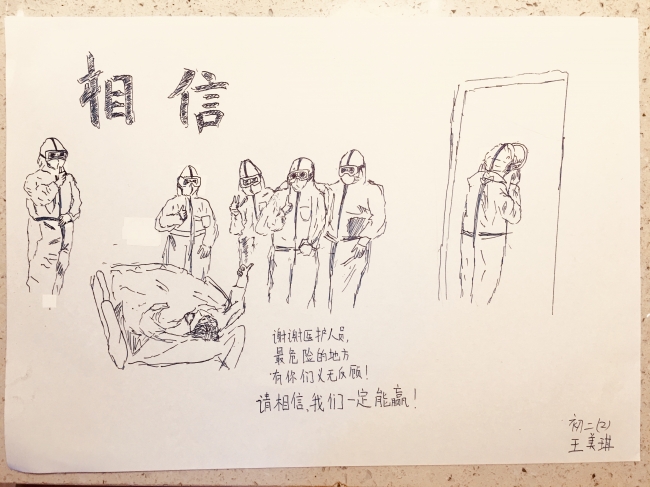 相信
谢谢医护人员,
最危险的地方
有你们义无反顾!
请相信,我们一定能赢!
初二(2)
王美琪